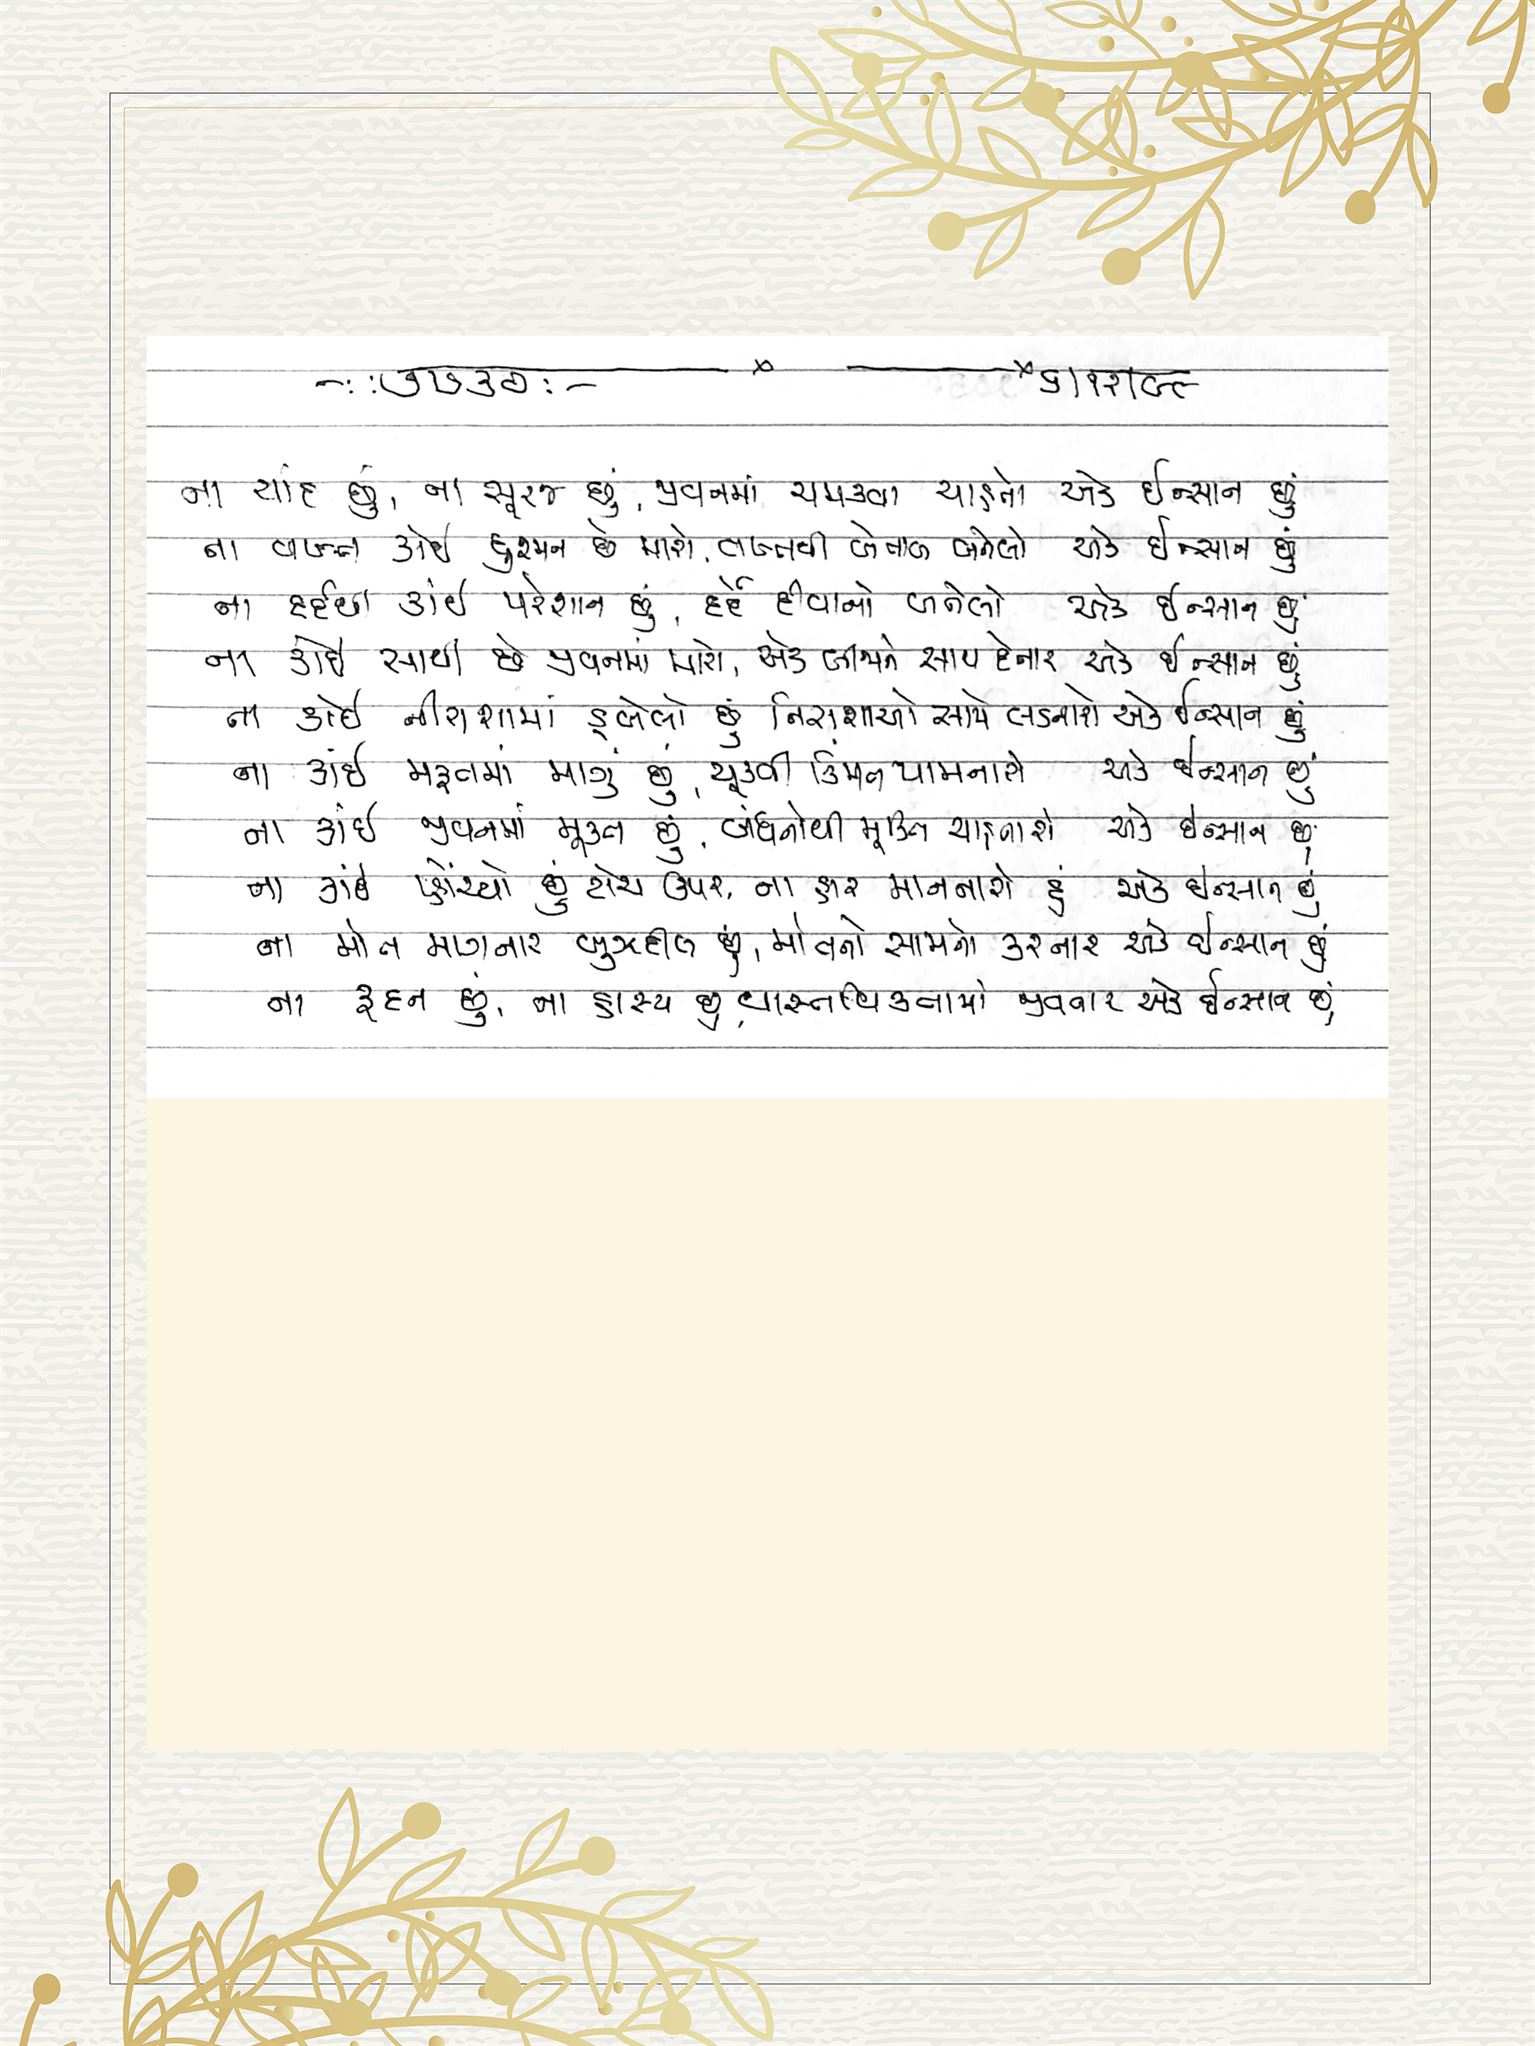 ના ચાંદ છું, ના સૂરજ છું, જીવનમાં ચમકવા ચાહતો એક ઈન્સાન છું
ના વખ્ત કોઈ દુશ્મન છે મારો, વખ્તથી બેતાજ બનેલો એક ઈન્સાન છું
ના દર્દથી કાંઈ પરેશાન છું, દર્દે દીવાનો બનેલો એક ઈન્સાન છું
ના કોઈ સાથી છે જીવનમાં મારો, એક બીજાને સાથ દેનાર એક ઈન્સાન છું
ના કોઈ નીરાશામાં ડૂબેલો છું નિરાશાઓ સામે લડનારો એક ઈન્સાન છું
ના કાંઈ મફતમાં માગું છું, ચૂકવી કિંમત પામનારો એક ઈન્સાન છું
ના કાંઈ જીવનમાં મૂક્ત છું, બંધનોથી મૂક્તિ ચાહનારો એક ઈન્સાન છું
ના કાંઈ પ્હોંચ્યો છું ટોચ ઉપર, ના હાર માનનારો હું એક ઈન્સાન છું
ના મોત માગનાર બુઝદીલ છું, મોતનો સામનો કરનાર એક ઈન્સાન છું
ના રૂદન છું, ના હાસ્ય છું, વાસ્તવિકતામાં જીવનાર એક ઈન્સાન છું